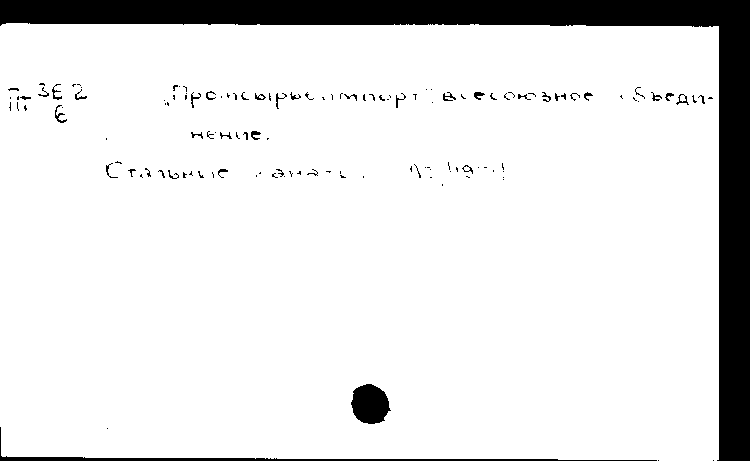 Пт 3E2
6
„Промсырьеимпорт" всесоюзное объеди-
нение.
Стальные канаты.